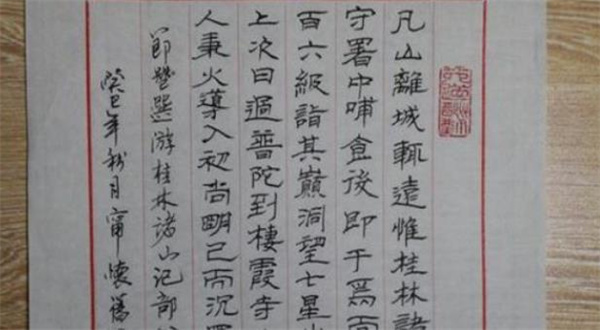 凡山離城輒遠惟桂林諸
守署中晡食後即于焉而
百六級詣其巔洞望七星山
上次日過普陀到棲霞寺
人秉火導入初尚明已而沉
節錄選游桂林諸山記部
癸巳年秋月甯懷